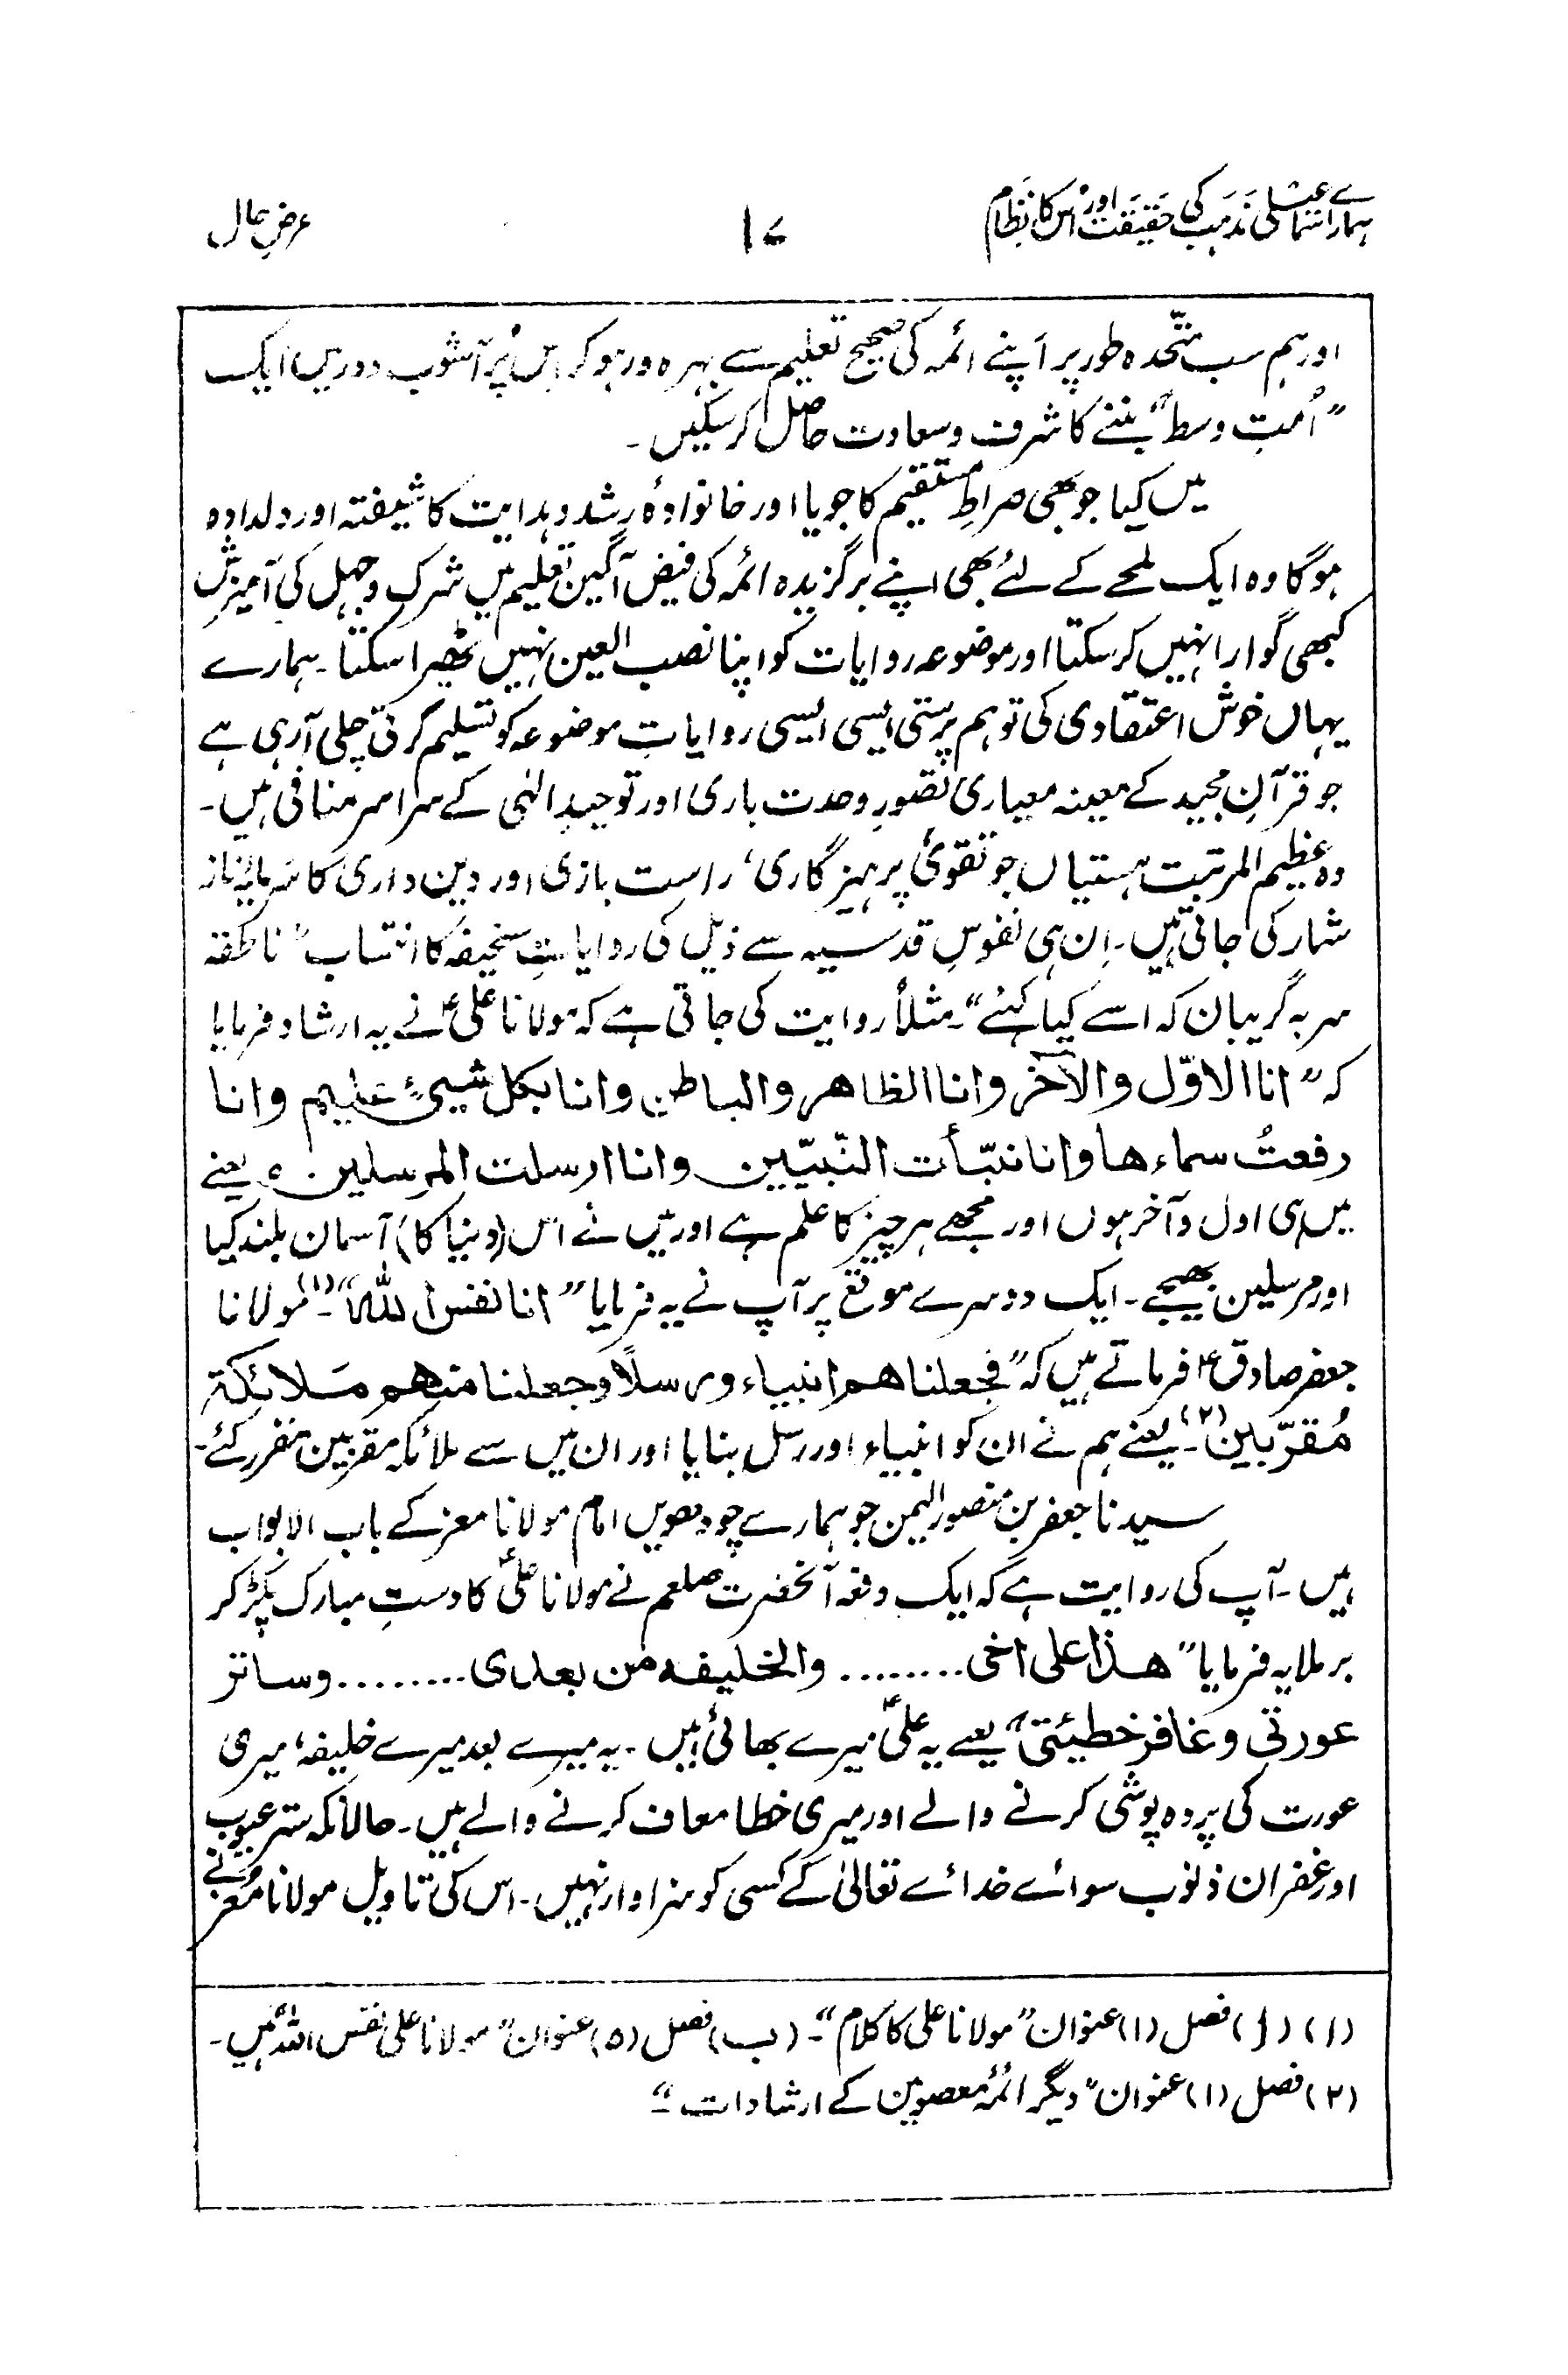 ہمارے اسماعیلی مذہب کی حقیقت اور اس کا نظام
۱۷
عرضِ حال
اور ہم سب متّحدہ طور پر اپنے ائمہ کی صحیح تعلیم سے بہرہ ور ہو کر اس پُر آشوب دور میں ایک
”اُمتِ وسط“ بننے کا شرف و سعادت حاصل کر سکیں۔
میں کیا جو بھی صراطِ مستقیم کا جویا اور خانوادۂ رشد و ہدایت کا شیفتہ اور دلدادہ
ہوگا وہ ایک لمحے کے لئے بھی اپنے برگزیدہ ائمہ کی فیض آگین تعلیم میں شرک و جہل کی آمیزش
کبھی گوارا نہیں کر سکتا اور موضوعہ روایات کو اپنا نصب العین نہیں ٹھیرا سکتا۔ ہمارے
یہاں خوش اعتقادی کی توہم پرستی ایسی ایسی روایاتِ موضوعہ کو تسلیم کرتی چلی آرہی ہے
جو قرآنِ مجید کے معینہ معیاری تصورِ وحدت باری اور توحیدِ الٰہی کے سراسر منافی ہیں۔
وہ عظیم المرتبت ہستیاں جو تقویٰ پرہیزگاری، راست بازی اور دین داری کا سرمایۂ ناز
شمار کی جاتی ہیں۔ اِن ہی نفوسِ قدسیہ سے ذیل کی روایاتِ سخیفہ کا انتساب ”ناطقہ
سر بہ گریباں کہ اسے کیا کہئے“۔ مثلاً روایت کی جاتی ہے کہ مولانا علیؑ نے یہ ارشاد فرمایا
کہ ”انا الاوّل والآخر وانا الظاهر والباطن وانا بكل شيئ عليم وانا
رفعتُ سماءها وانا نبّأت النّبيّين وانا ارسلت المرسلين“ یعنے
میں ہی اول و آخر ہوں اور مجھے ہر چیز کا علم ہے اور میں نے اس (دنیا کا) آسمان بلند کیا
اور مرسلین بھیجے۔ ایک دوسرے موقع پر آپ نے یہ فرمایا ”انا نفس الله“۔(۱) مولانا
جعفر صادقؑ فرماتے ہیں کہ ”فجعلناهم انبياء ورسلاً وجعلنا منهم مَلائكة
مُقرّبين“(۲)۔ یعنے ہم نے ان کو انبیاء اور رسل بنایا اور ان میں سے ملائکہ مقربین مقرر کئے۔
سیدنا جعفر بن منصور الیمن جو ہمارے چودھویں امام مولانا معز کے باب الابواب
ہیں۔ آپ کی روایت ہے کہ ایک دفعہ آنحضرت صلعم نے مولانا علیؑ کا دستِ مبارک پکڑ کر
برملا یہ فرمایا ”هذا علی اخی ........ والخليفه من بعدی ........ وساتر
عورتی وغافر خطيئتی“ یعنے یہ علیؑ میرے بھائی ہیں۔ یہ میرے بعد میرے خلیفہ، میری
عورت کی پردہ پوشی کرنے والے اور میری خطا معاف کرنے والے ہیں۔ حالانکہ ستر عیوب
اور غفران ذنوب سوائے خدائے تعالیٰ کے کسی کو سزاوار نہیں۔ اس کی تاویل مولانا معز نے
(۱) (ا) فصل (۱) عنوان ”مولانا علی کا کلام“۔ (ب) فصل (۵) عنوان ”مولانا علی نفس اللہ ہیں۔
(۲) فصل (۱) عنوان ”دیگر ائمۂ معصومین کے ارشادات“۔